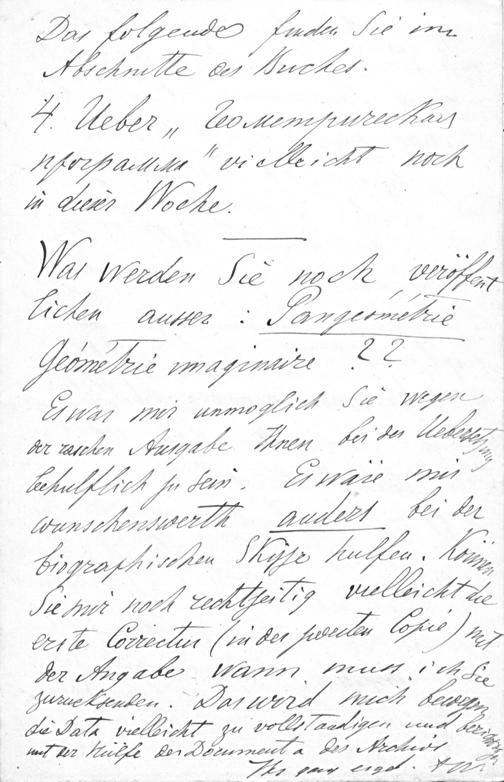 Das folgende finden Sie im
Abschnitte des Buches.
4. Ueber „ Геометрическая
программа " vielleicht noch
in dieser Woche.
Was werden Sie noch veröffent
lichen ausser : Pangéométrie
Géométrie imaginaire ??
Es war mir unmoglich Sie wegen
der raschen Ausgabe Ihnen bei der Uebersetzung
behulflich zu sein. Es wäre mir
wunschenswerth anders bei der
biographischen Skizze hulfen. Können
Sie mir noch rechtzeitig vielleicht die
erste Correctur (in der zweiten Copie) mit
der Angabe wann muss ich Sie
zurucksenden. Das wird mich bewegen
die Data vielleicht zu vollständigen und
mit der Hülfe der Documenta des Archivs
Ihr ganz